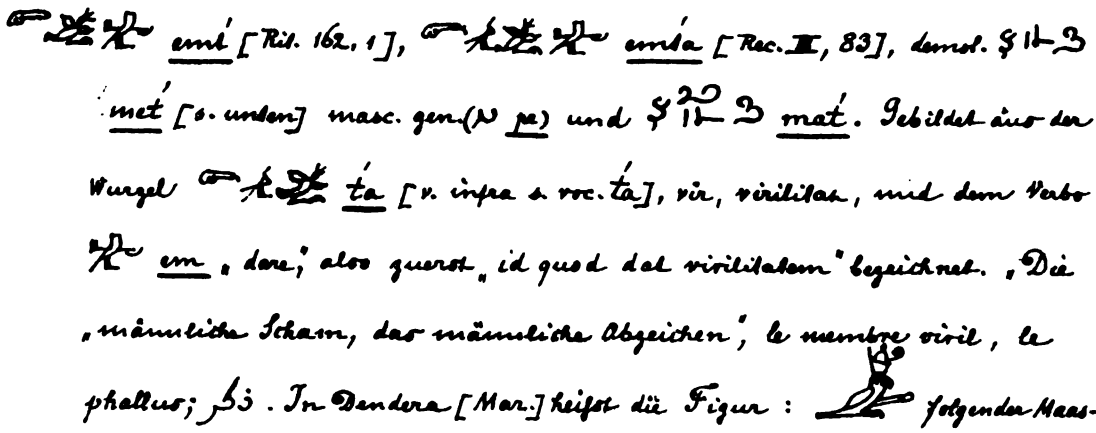 emt́ [Rit. 162, 1], emt́a [Rec. III, 83], demot.
met́ [s. unten] masc. gen. (pe) und mat́. Gebildet aus der
Wurzel t́a [v. infra s. voc. t́a], vir, virilitas, und dem Verbo
em „dare,“ also zuerst „id quod dat virilitatem“ bezeichnet. „Die
„männliche Scham, das männliche Abzeichen“, le membre viril, le
phallus; ذكر. In Dendera [Mar.] heifst die Figur : folgender Maas-